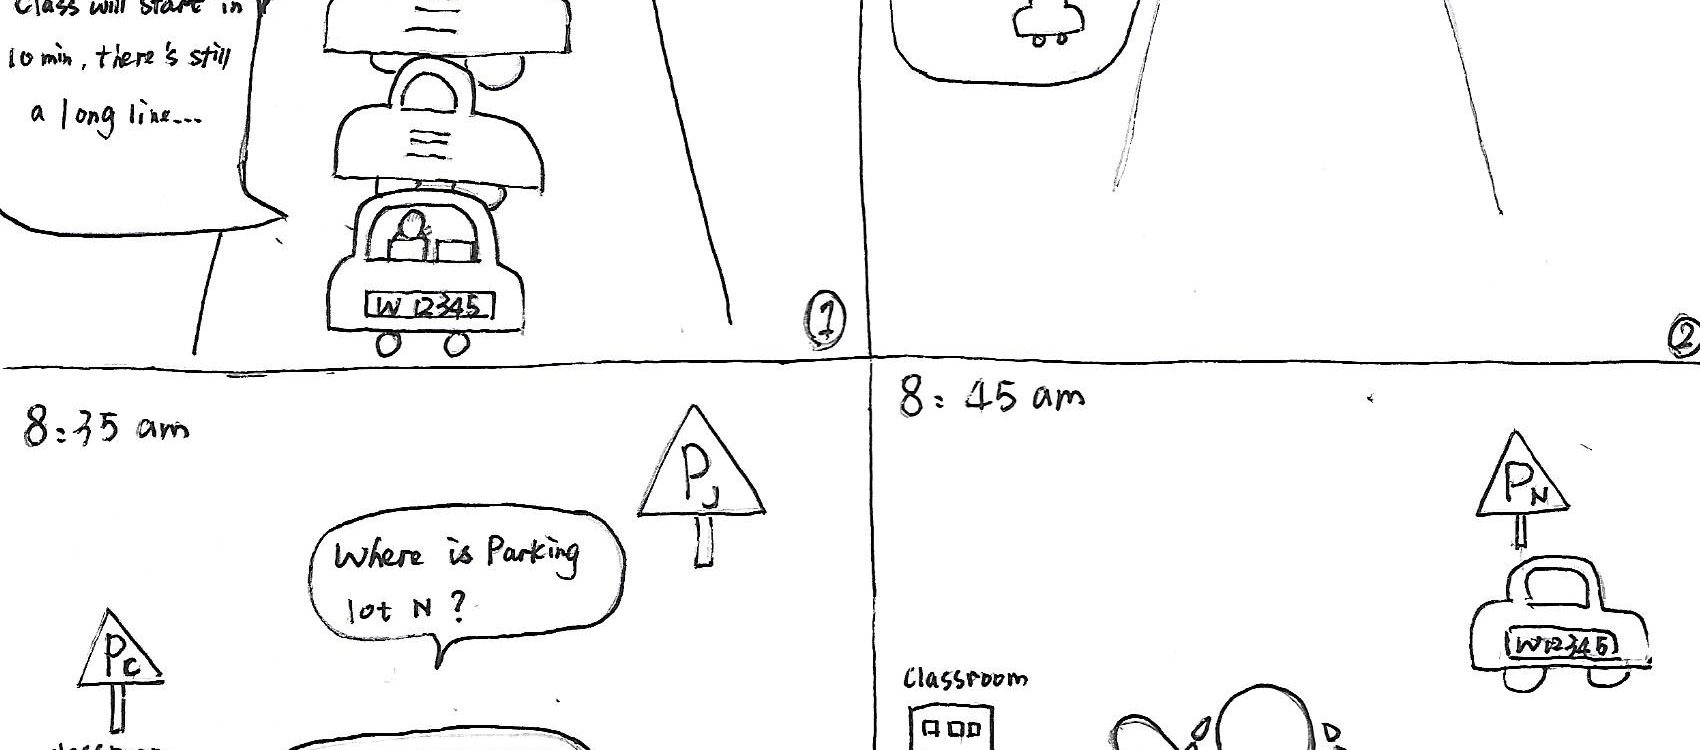 Class will start in
10 min, there's still
a long line...
W 12345
1
2
8:35 am
PJ
Where is Parking
lot N ?
Pc
8:45 am
PN
W12345
Classroom